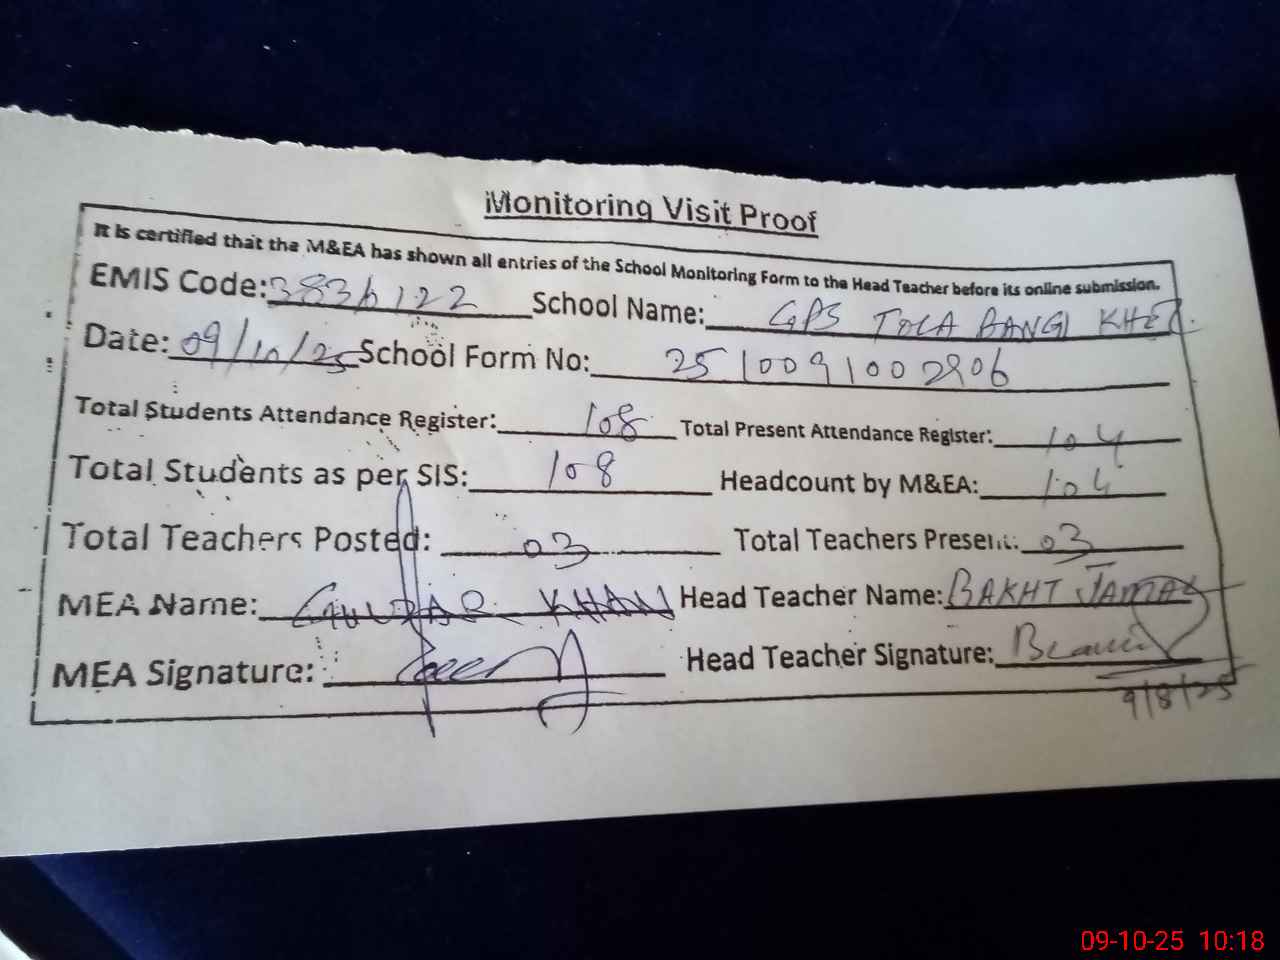 Monitoring Visit Proof
It is certified that the M&EA has shown all entries of the School Monitoring Form to the Head Teacher before its online submission.
EMIS Code: 3836122 School Name: GPS TOLA BANGI KHEL
Date: 09/10/25 School Form No: 2510091002906
Total Students Attendance Register: 108 Total Present Attendance Register: 104
Total Students as per SIS: 108 Headcount by M&EA: 104
Total Teachers Posted: 03 Total Teachers Present: 03
MEA Name: KHAN Head Teacher Name: BAKHT JAMAL
MEA Signature: Head Teacher Signature:
9/8/25
09-10-25 10:18